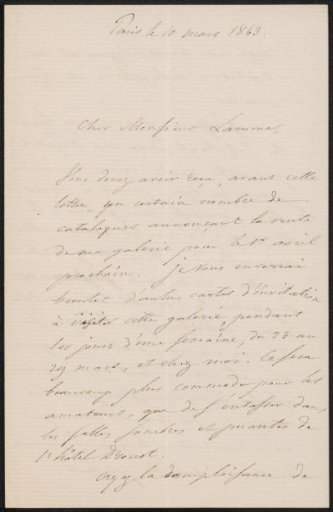 Paris le 10 mars 1863.
Cher Monsieur Lamme,
Vous devez avoir reçu, avant cette
lettre, un certain nombre de
catalogues annonçant la vente
de ma galerie pour le 1er avril
prochain. Je vous enverrai
bientôt d'autres cartes d'invitation
à visiter cette galerie, pendant
les jours d'une semaine, du 23 au
29 mars, et chez moi. Ce sera
beaucoup plus commode pour les
amateurs, que de s'entasser dans
les salles sombres et puantes de
l'hôtel Drouot.
Ayez la complaisance de